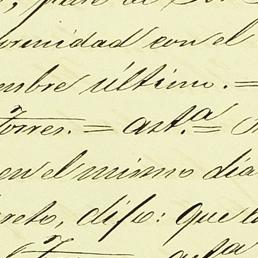 , para de
ormidad con el
mbre último. =
Torres. = ast.ª =
en el mismo dia
reto, dijo: que